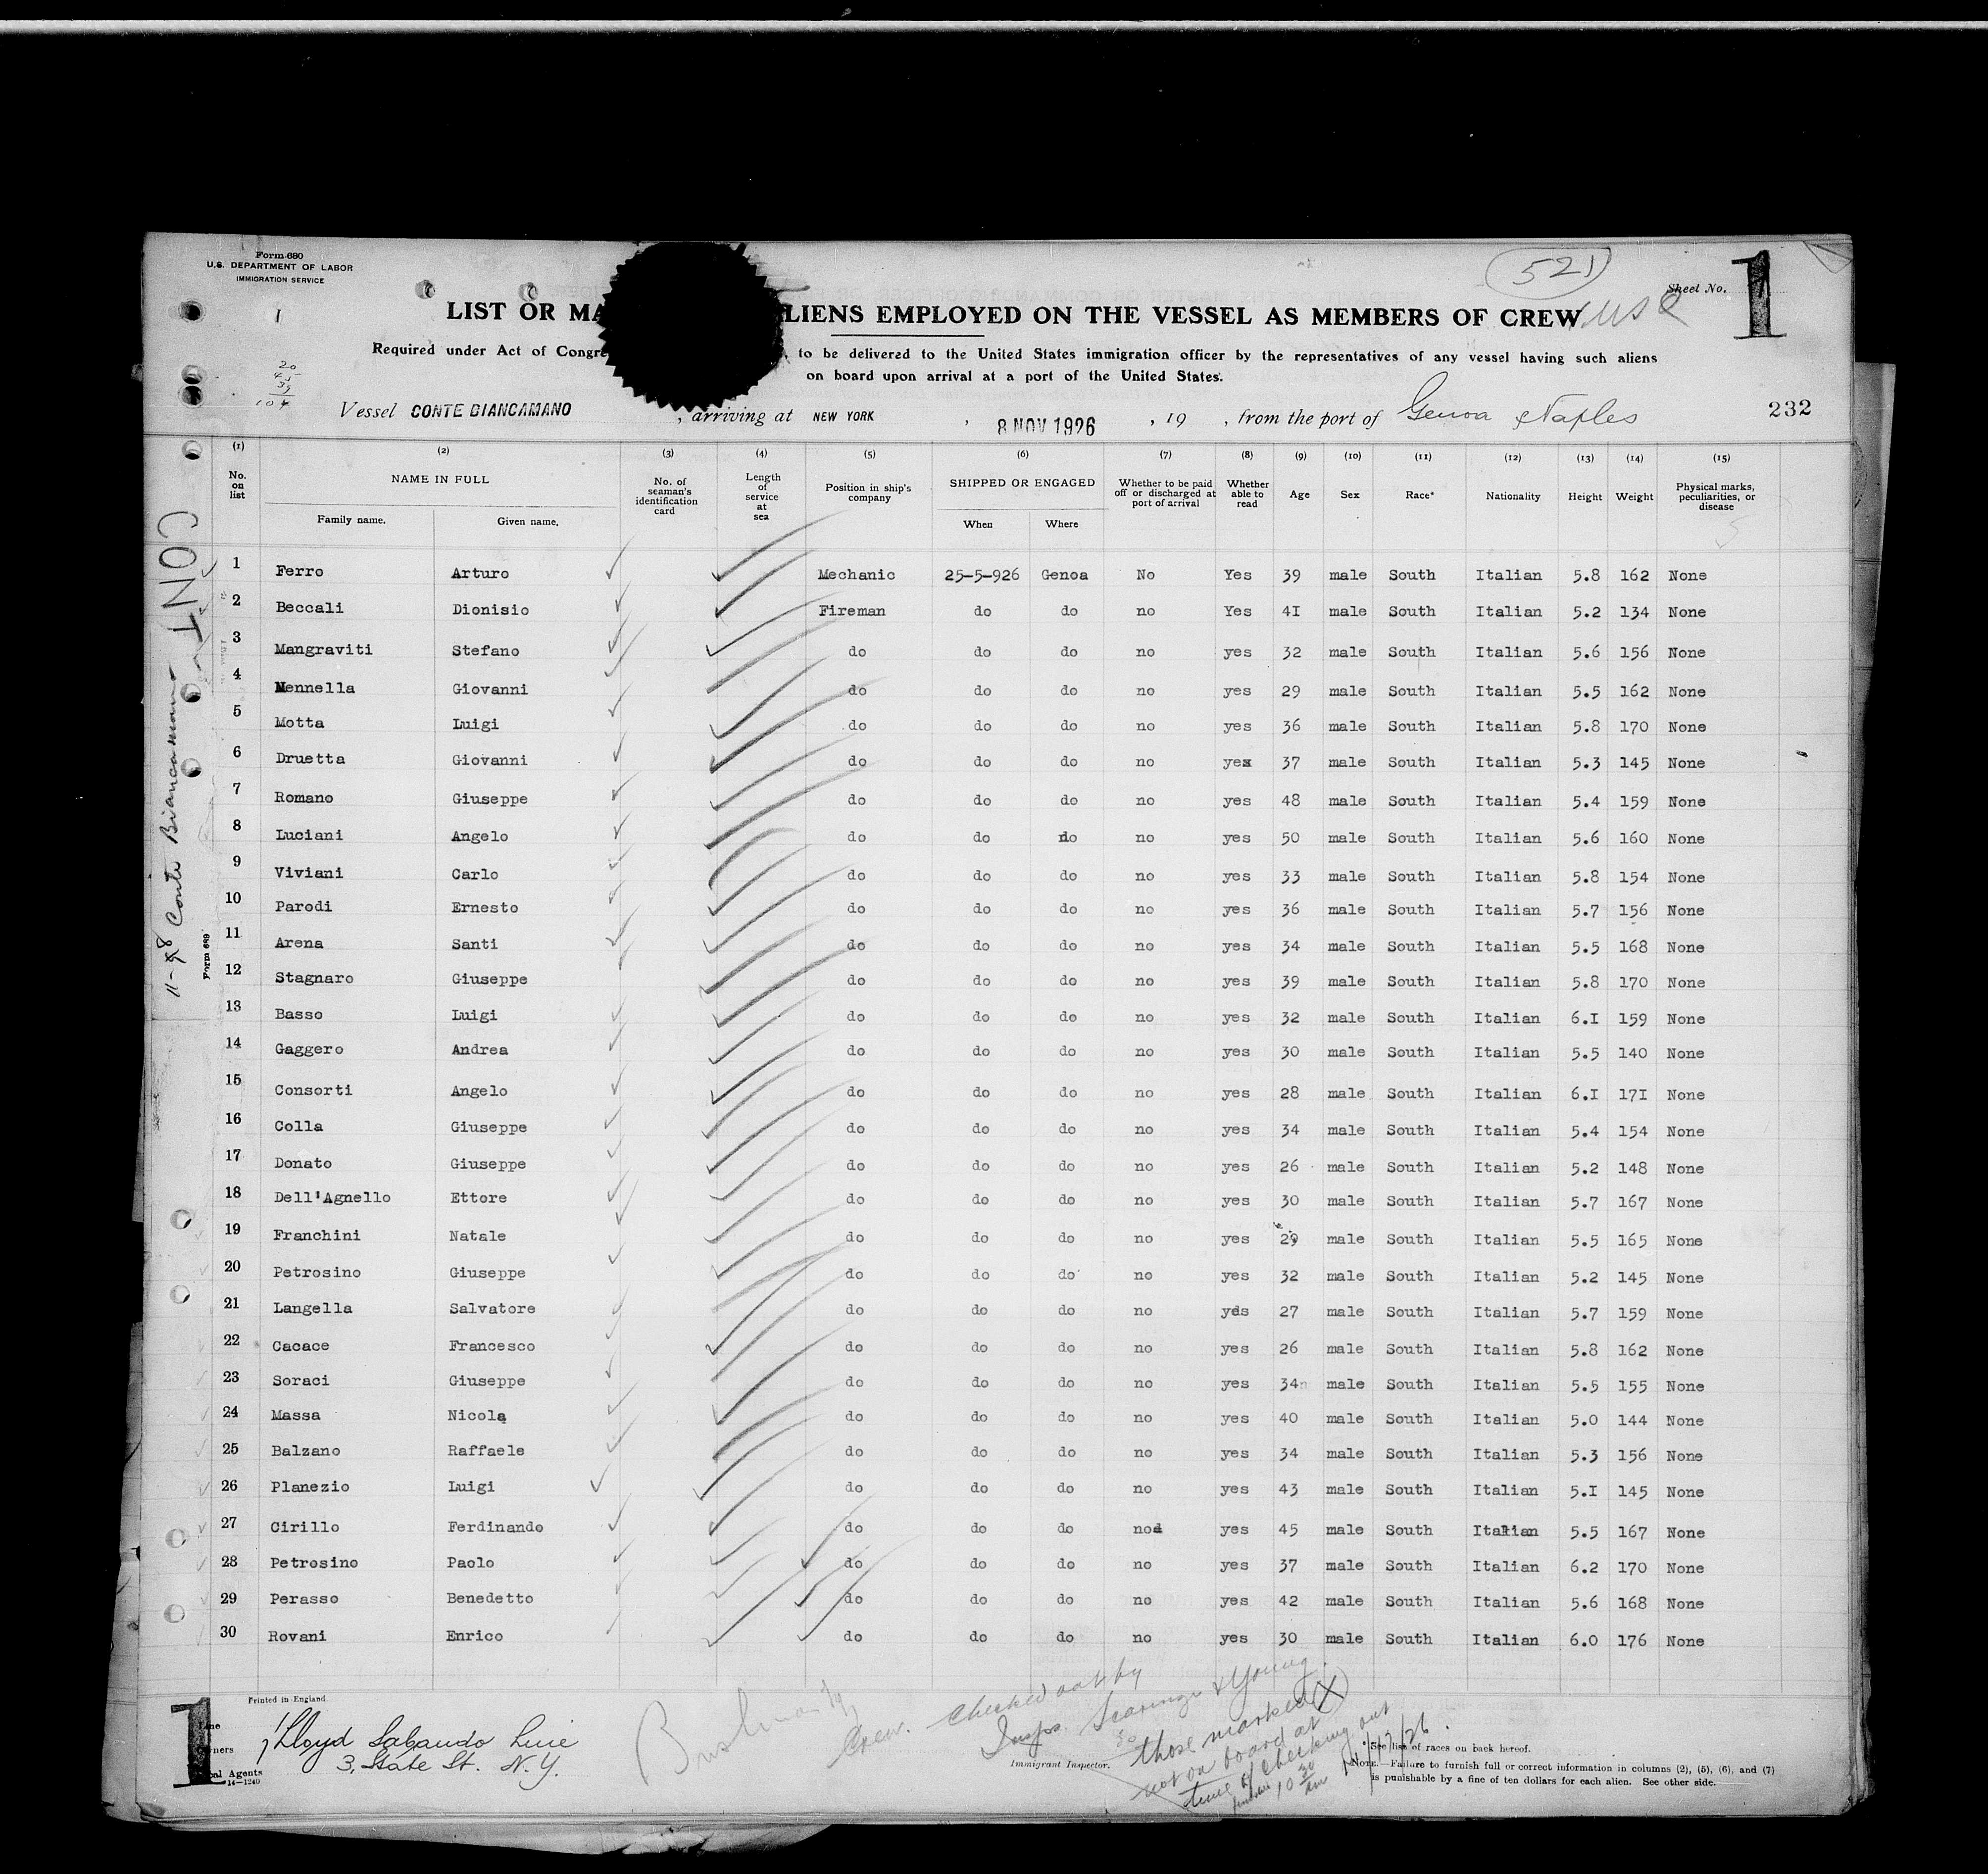 Form 680
U.S. DEPARTMENT OF LABOR
IMMIGRATION SERVICE
1
521
Sheet No. 1
LIST OR MA LIENS EMPLOYED ON THE VESSEL AS MEMBERS OF CREW
Required under Act of Congre , to be delivered to the United States immigration officer by the representatives of any vessel having such aliens
on board upon arrival at a port of the United States.
20
45
39
104
Vessel CONTE BIANCAMANO , arriving at NEW YORK , 8 NOV 1926 , 19 , from the port of Genoa & Naples 232
(1) (2) (3) (4) (5) (6) (7) (8) (9) (10) (11) (12) (13) (14) (15)
No. on list NAME IN FULL Family name. Given name. No. of seaman's identification card Length of service at sea Position in ship's company SHIPPED OR ENGAGED When Where Whether to be paid off or discharged at port of arrival Whether able to read Age Sex Race* Nationality Height Weight Physical marks, peculiarities, or disease
1 Ferro Arturo Mechanic 25-5-926 Genoa No Yes 39 male South Italian 5.8 162 None
2 Beccali Dionisio Fireman do do no Yes 41 male South Italian 5.2 134 None
3 Mangraviti Stefano do do do no yes 32 male South Italian 5.6 156 None
4 Mennella Giovanni do do do no yes 29 male South Italian 5.5 162 None
5 Motta Luigi do do do no yes 36 male South Italian 5.8 170 None
6 Druetta Giovanni do do do no yes 37 male South Italian 5.3 145 None
7 Romano Giuseppe do do do no yes 48 male South Italian 5.4 159 None
8 Luciani Angelo do do do no yes 50 male South Italian 5.6 160 None
9 Viviani Carlo do do do no yes 33 male South Italian 5.8 154 None
10 Parodi Ernesto do do do no yes 36 male South Italian 5.7 156 None
11 Arena Santi do do do no yes 34 male South Italian 5.5 168 None
12 Stagnaro Giuseppe do do do no yes 39 male South Italian 5.8 170 None
13 Basso Luigi do do do no yes 32 male South Italian 6.1 159 None
14 Gaggero Andrea do do do no yes 30 male South Italian 5.5 140 None
15 Consorti Angelo do do do no yes 28 male South Italian 6.1 171 None
16 Colla Giuseppe do do do no yes 34 male South Italian 5.4 154 None
17 Donato Giuseppe do do do no yes 26 male South Italian 5.2 148 None
18 Dell'Agnello Ettore do do do no yes 30 male South Italian 5.7 167 None
19 Franchini Natale do do do no yes 29 male South Italian 5.5 165 None
20 Petrosino Giuseppe do do do no yes 32 male South Italian 5.2 145 None
21 Langella Salvatore do do do no yds 27 male South Italian 5.7 159 None
22 Cacace Francesco do do do no yes 26 male South Italian 5.8 162 None
23 Soraci Giuseppe do do do no yes 34 male South Italian 5.5 155 None
24 Massa Nicola do do do no yes 40 male South Italian 5.0 144 None
25 Balzano Raffaele do do do no yes 34 male South Italian 5.3 156 None
26 Planezio Luigi do do do no yes 43 male South Italian 5.1 145 None
27 Cirillo Ferdinando do do do no yes 45 male South Italian 5.5 167 None
28 Petrosino Paolo do do do no yes 37 male South Italian 6.2 170 None
29 Perasso Benedetto do do do no yes 42 male South Italian 5.6 168 None
30 Rovani Enrico do do do no yes 30 male South Italian 6.0 176 None
CONT
11-8 Conte Biancamano
Form 689
Printed in England
1
Lloyd Sabaudo Line
3, State St. N.Y.
14-1240
Crew. Checked out by
Insps. & Young.
those marked X
not on board at
time of checking out
10 30
Immigrant Inspector.
* See list of races on back hereof.
NOTE.—Failure to furnish full or correct information in columns (2), (5), (6), and (7)
is punishable by a fine of ten dollars for each alien. See other side.